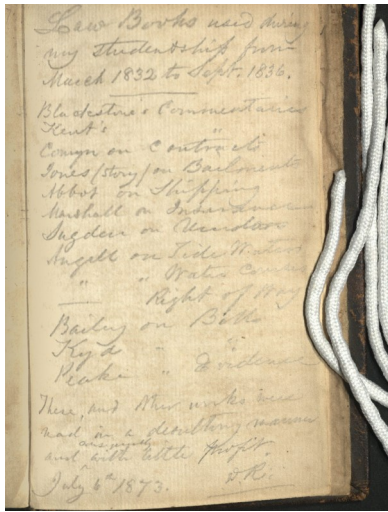 Law Books used during
my studentship from
March 1832 to Sept. 1836.
Blackstone's Commentaries
Kent's "
Comyn on Contracts
Jones (Story) on Bailments
Abbot on Shipping
Marshall on Insurance
Sugden on Vendors
Angell on Tide Waters
" " Water Courses
Right of Way
Bailey on Bills
Kyd " "
Peake " Evidence
These, and other works were
read in a desultory manner
and with little profit.
July 6th 1873. D.R.